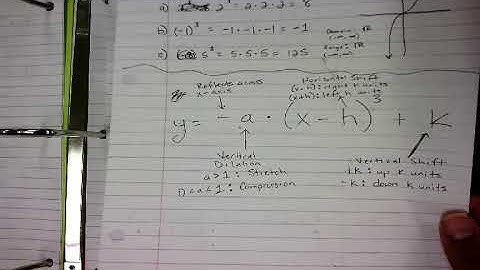 2³ = 2·2·2 = 8
b) (-1)³ = -1·-1·-1 = -1
c) 5³ = 5·5·5 = 125
Domain: ℝ
(-∞, ∞)
Range: ℝ
(-∞, ∞)
Reflects across
x-axis
Horizontal Shift
(x-h): right h units
(x+h): left h units
y = -a · (x - h)³ + k
Vertical
Dilation
a > 1 : Stretch
0 < a < 1 : Compression
Vertical Shift
+k : up k units
-k : down k units